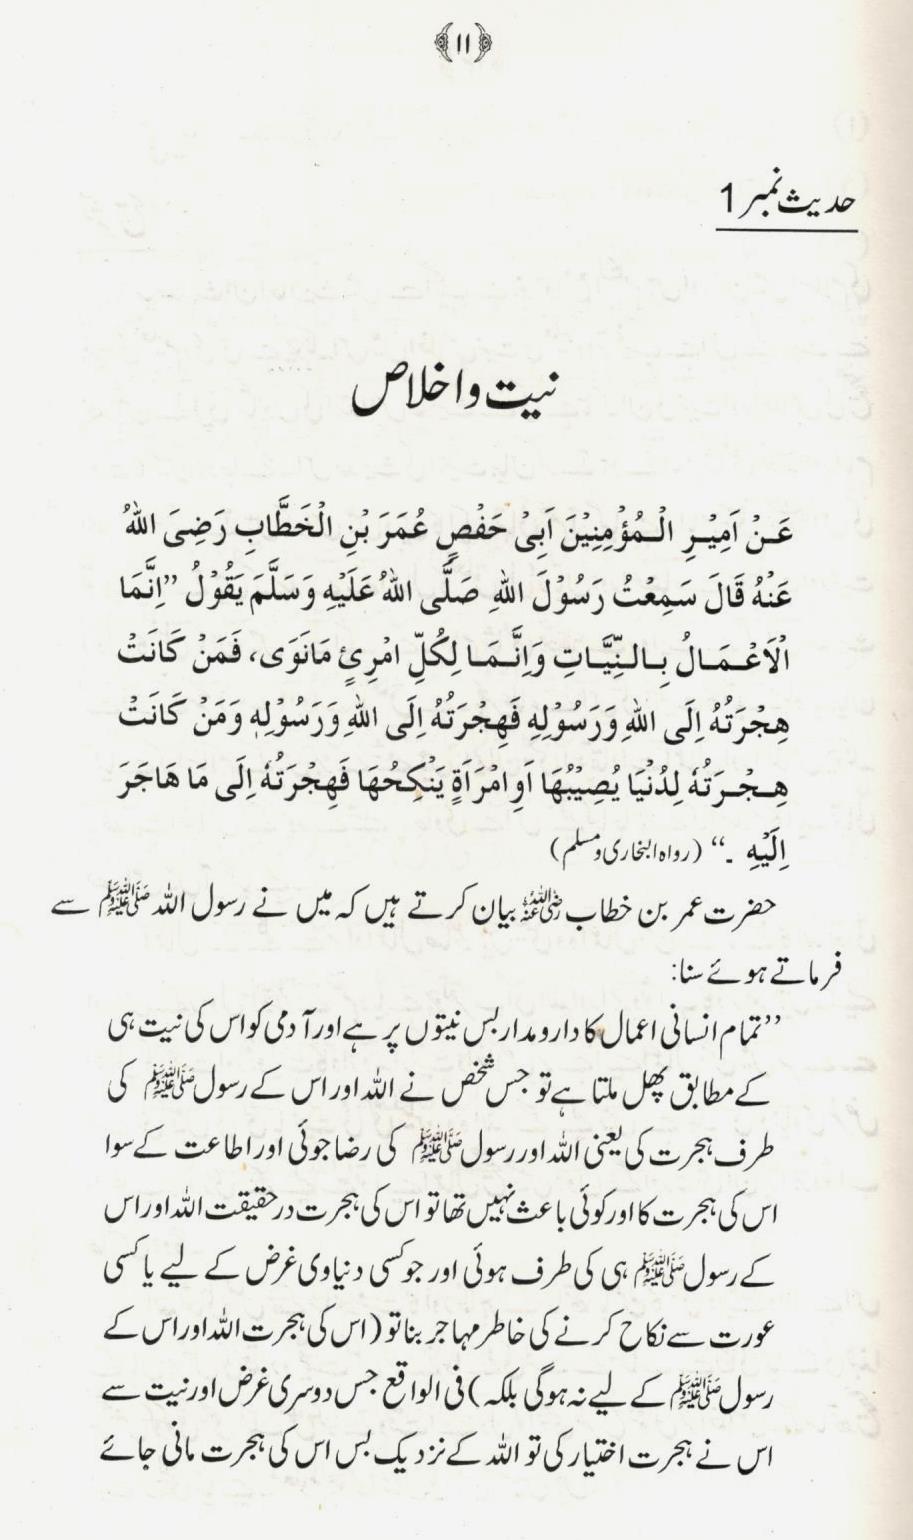 ﴿۱۱﴾
حدیث نمبر 1
نیت و اخلاص
عَنْ اَمِیْرِ الْمُؤْمِنِیْنَ اَبِیْ حَفْصٍ عُمَرَ بْنِ الْخَطَّابِ رَضِیَ اللّٰهُ
عَنْهُ قَالَ سَمِعْتُ رَسُوْلَ اللّٰهِ صَلَّی اللّٰهُ عَلَیْهِ وَسَلَّمَ یَقُوْلُ ”اِنَّمَا
الْاَعْمَالُ بِالنِّیَّاتِ وَاِنَّمَا لِکُلِّ امْرِئٍ مَانَوَی، فَمَنْ کَانَتْ
هِجْرَتُهُ اِلَی اللّٰهِ وَرَسُوْلِهِ فَهِجْرَتُهُ اِلَی اللّٰهِ وَرَسُوْلِهٖ وَمَنْ کَانَتْ
هِجْرَتُهُ لِدُنْیَا یُصِیْبُهَا اَوِ امْرَاَةٍ یَنْکِحُهَا فَهِجْرَتُهُ اِلَی مَا هَاجَرَ
اِلَیْهِ ۔“ (رواہ البخاری ومسلم)
حضرت عمر بن خطاب رضی اللہ عنہ بیان کرتے ہیں کہ میں نے رسول اللہ ﷺ سے
فرماتے ہوئے سنا:
”تمام انسانی اعمال کا دارومدار بس نیتوں پر ہے اور آدمی کو اس کی نیت ہی
کے مطابق پھل ملتا ہے تو جس شخص نے اللہ اور اس کے رسول ﷺ کی
طرف ہجرت کی یعنی اللہ اور رسول ﷺ کی رضا جوئی اور اطاعت کے سوا
اس کی ہجرت کا اور کوئی باعث نہیں تھا تو اس کی ہجرت درحقیقت اللہ اور اس
کے رسول ﷺ ہی کی طرف ہوئی اور جو کسی دنیاوی غرض کے لیے یا کسی
عورت سے نکاح کرنے کی خاطر مہاجر بنا تو (اس کی ہجرت اللہ اور اس کے
رسول ﷺ کے لیے نہ ہوگی بلکہ) فی الواقع جس دوسری غرض اور نیت سے
اس نے ہجرت اختیار کی تو اللہ کے نزدیک بس اس کی ہجرت مانی جائے